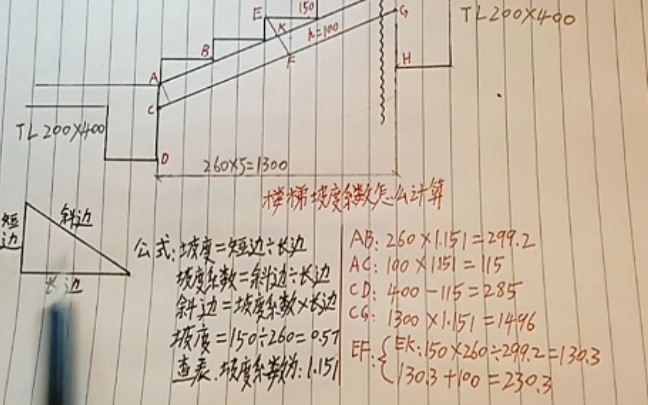 150
E
TL200×400
K
G
h=100
B
F
H
A
C
TL200×400
D
260×5=1300
楼梯坡度系数怎么计算
短边
斜边
长边
公式:坡度=短边÷长边
坡度系数=斜边÷长边
斜边=坡度系数×长边
坡度=150÷260=0.57
查表.坡度系数为:1.151
AB: 260×1.151=299.2
AC: 100×1.151=115
CD: 400-115=285
CG: 1300×1.151=1496
EF: EK:150×260÷299.2=130.3
130.3+100=230.3